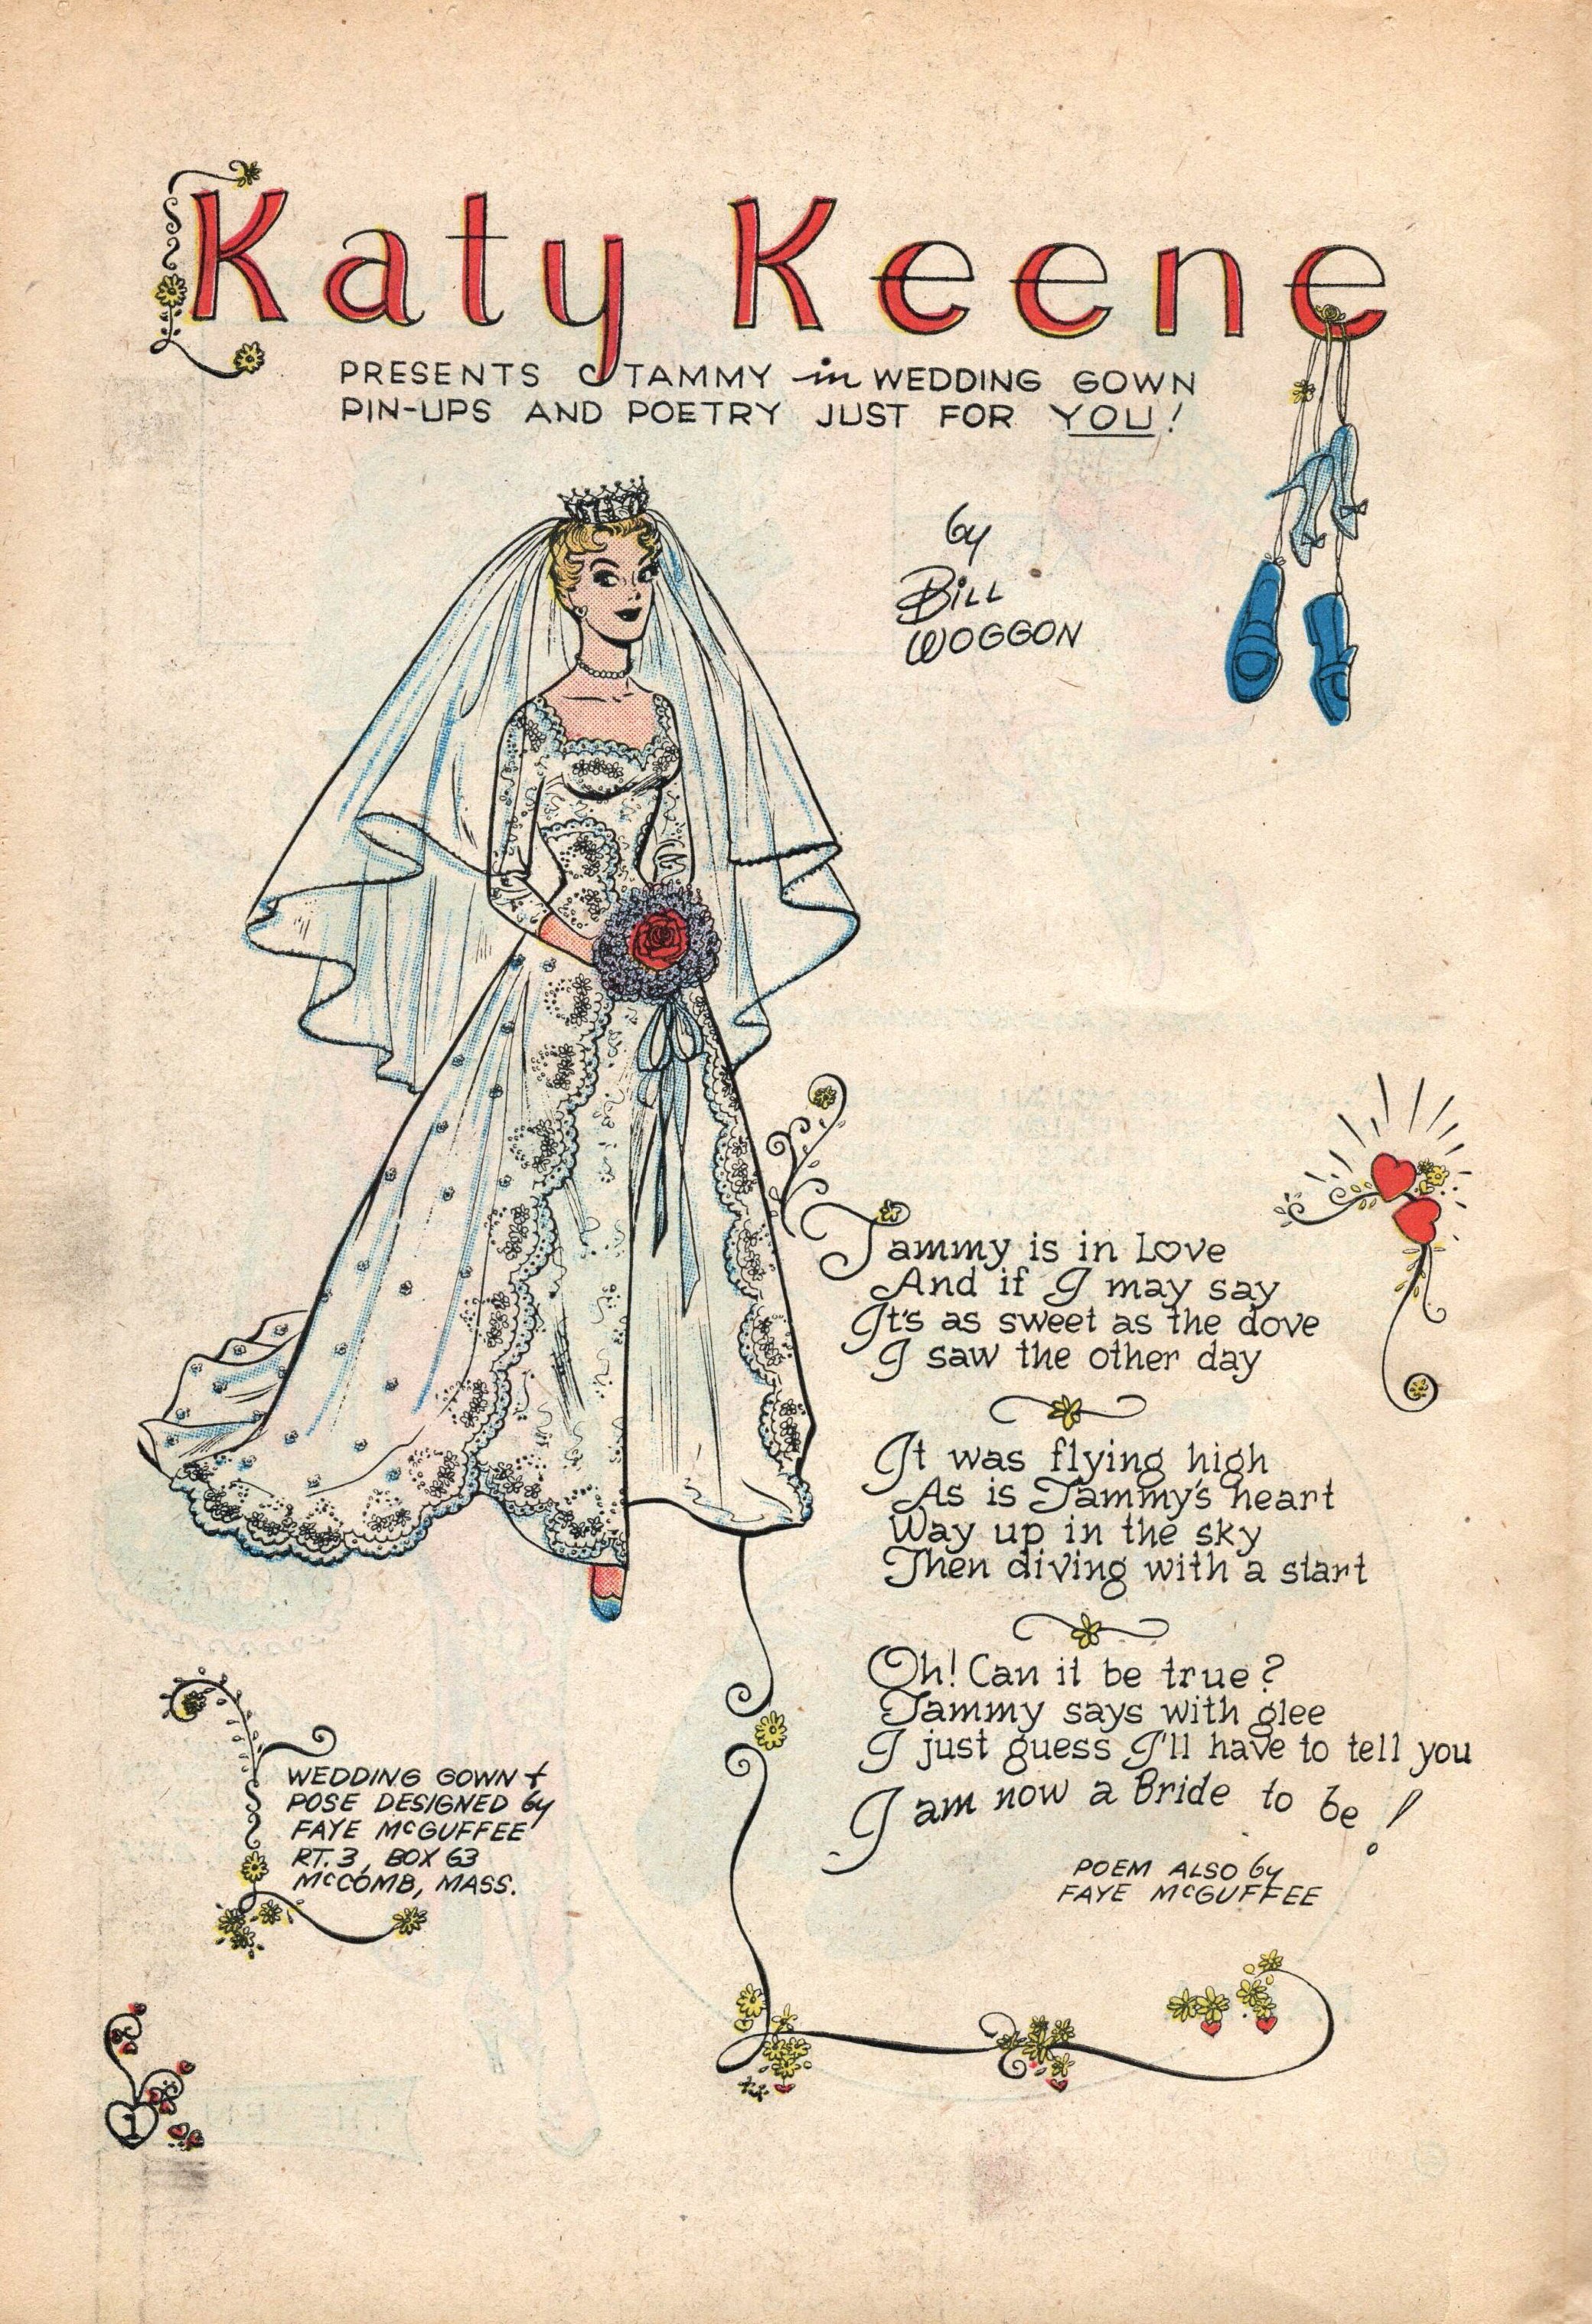 Katy Keene
PRESENTS TAMMY in WEDDING GOWN
PIN-UPS AND POETRY JUST FOR YOU!
by
BiLL
WOGGON
Tammy is in Love
And if I may say
It's as sweet as the dove
I saw the other day
It was flying high
As is Tammy's heart
Way up in the sky
Then diving with a start
Oh! Can it be true?
Tammy says with glee
I just guess I'll have to tell you
I am now a Bride to be!
POEM ALSO by
FAYE McGUFFEE
WEDDING GOWN +
POSE DESIGNED by
FAYE McGUFFEE
RT. 3, BOX 63
McCOMB, MASS.
1